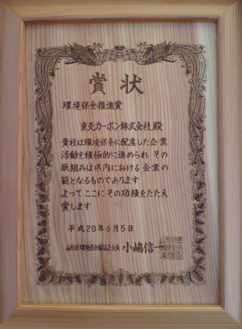 賞状
環境保全推進賞
東北カーボン株式会社 殿
貴社は環境保全に配慮した企業
活動を積極的に進められ その
取組みは県内における企業の
範となるものであります
よってここにその功績をたたえ
賞します
平成20年6月5日
小嶋信一